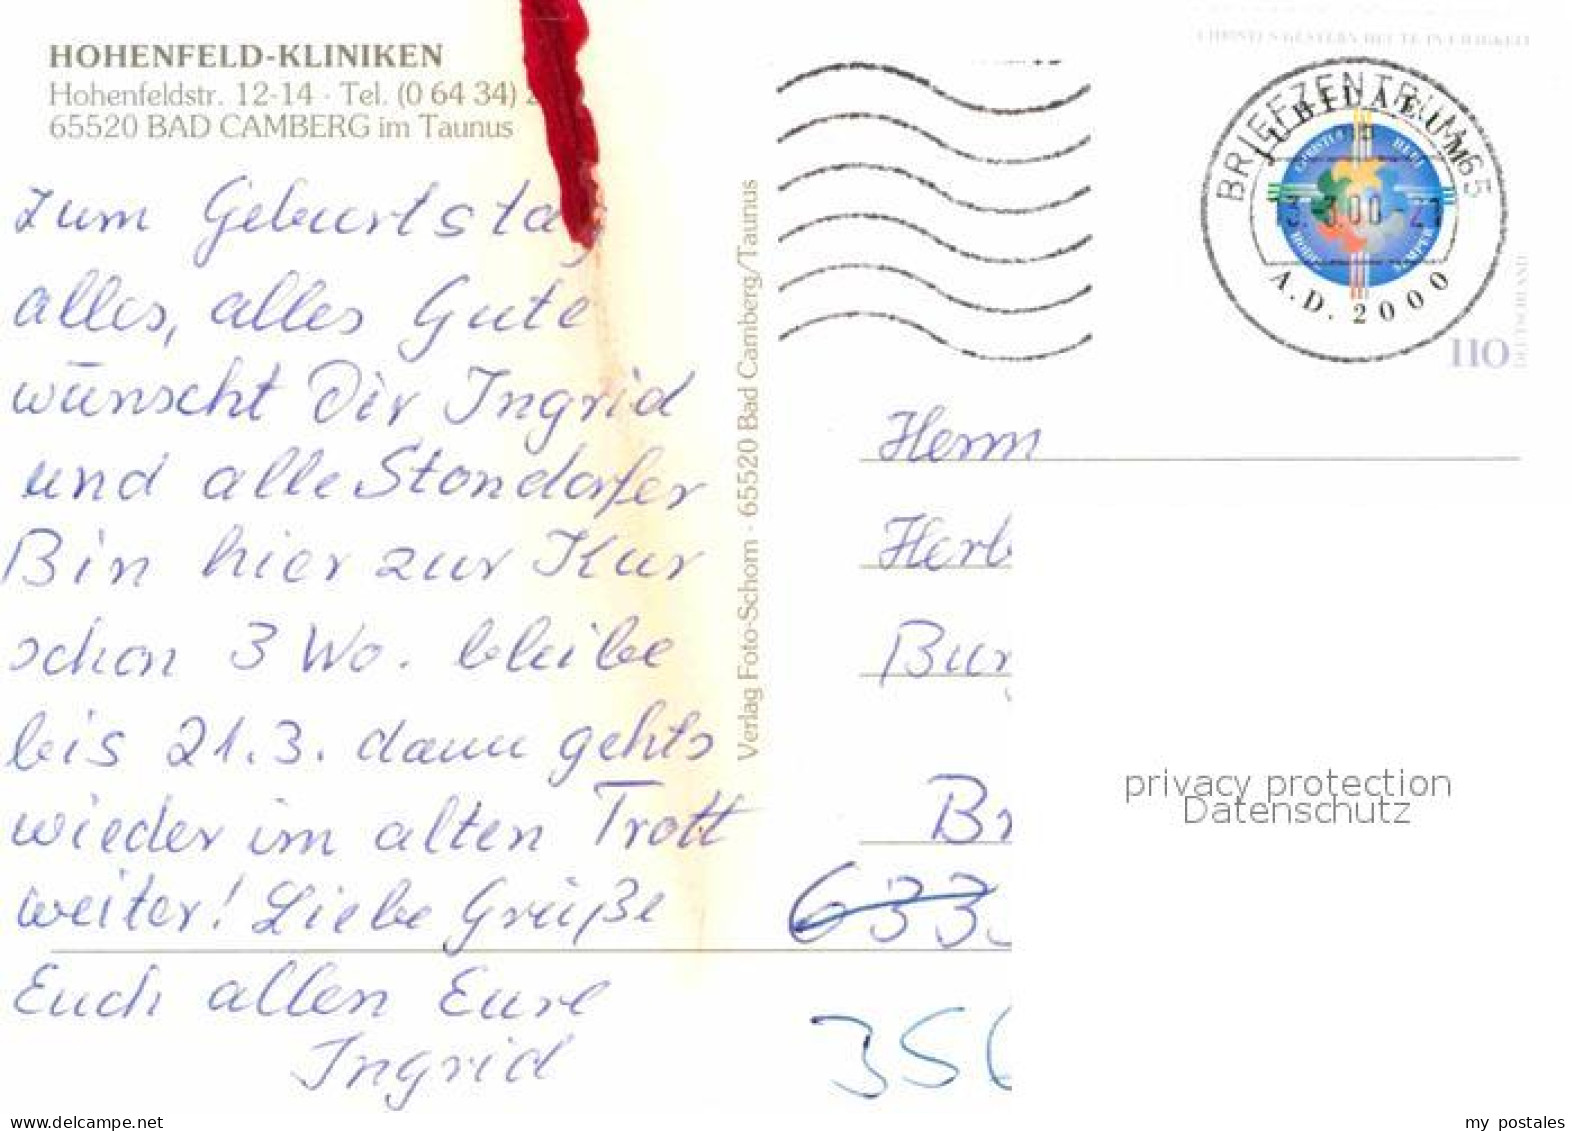 HOHENFELD-KLINIKEN
Hohenfeldstr. 12-14 · Tel. (0 64 34)
65520 BAD CAMBERG im Taunus
Zum Geburtstag
alles, alles Gute
wünscht Dir Ingrid
und alle Stondorfer
Bin hier zur Kur
schon 3 Wo. bleibe
bis 21.3. dann gehts
wieder im alten Trott
weiter! Liebe Grüße
Euch allen Eure
Ingrid
Verlag Foto-Schorn · 65520 Bad Camberg/Taunus
CHRISTUS GESTERN HEUTE IN EWIGKEIT
BRIEFZENTRUM 65
IUBILAEUM
CHRISTUS HERI
HODIE SEMPER
A.D. 2000
110
DEUTSCHLAND
Herrn
Herb
Bur
Br
633
356
privacy protection
Datenschutz
www.delcampe.net
my_postales